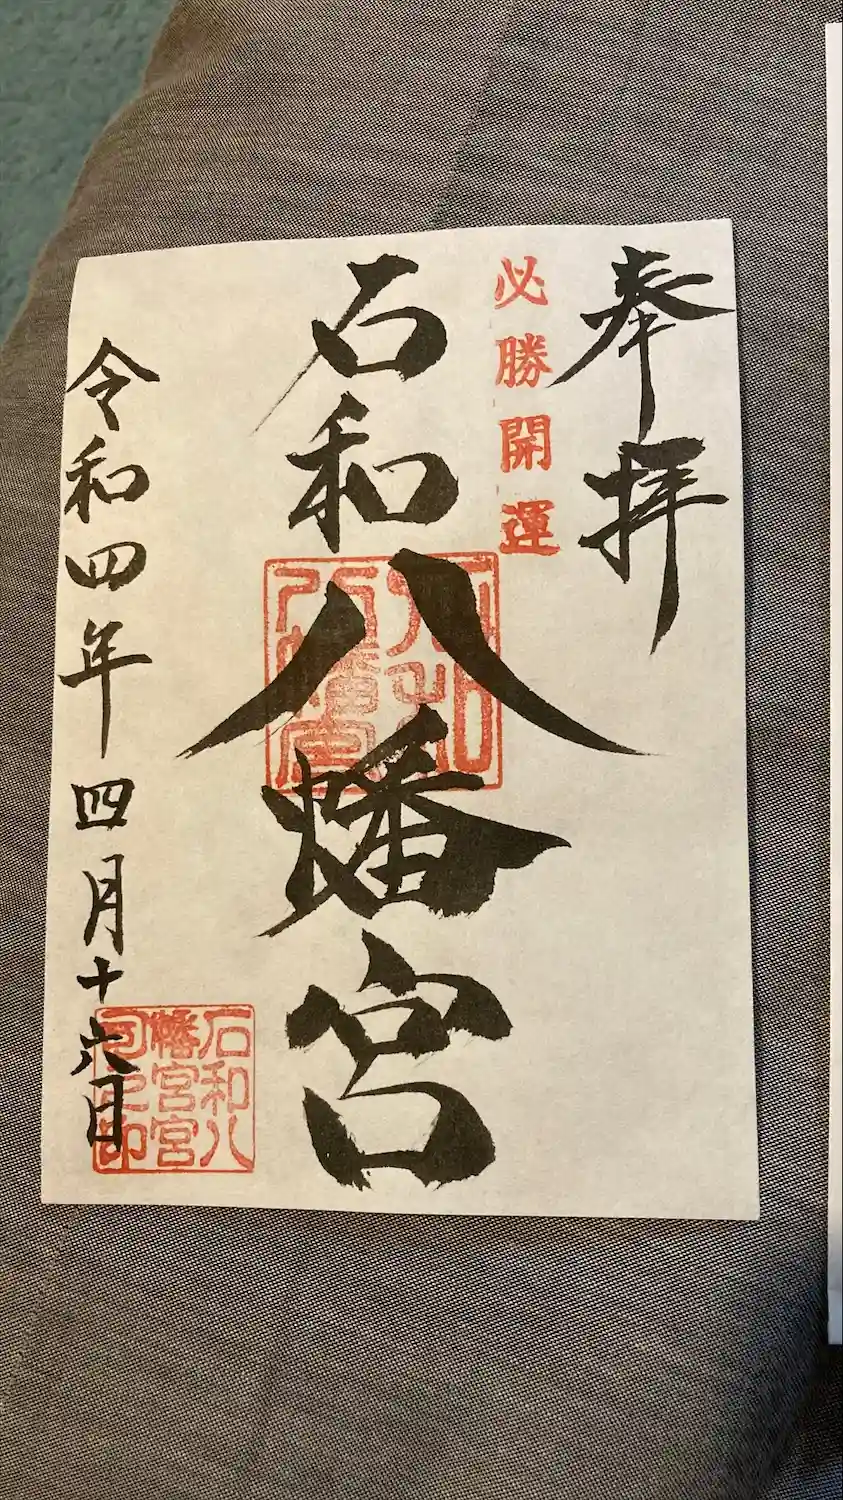 奉拝
必勝開運
石和八幡宮
石和八幡宮
石和八
幡宮宮
司之印
令和四年四月十六日